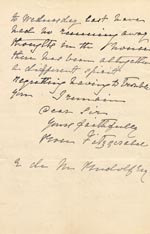 to Wednesday last have
had no running away
thoughts in the house
there has been altogether
a different spirit
regretting having to trouble
you I remain
Dear Sir
Yours faithfully
Fitzgerald